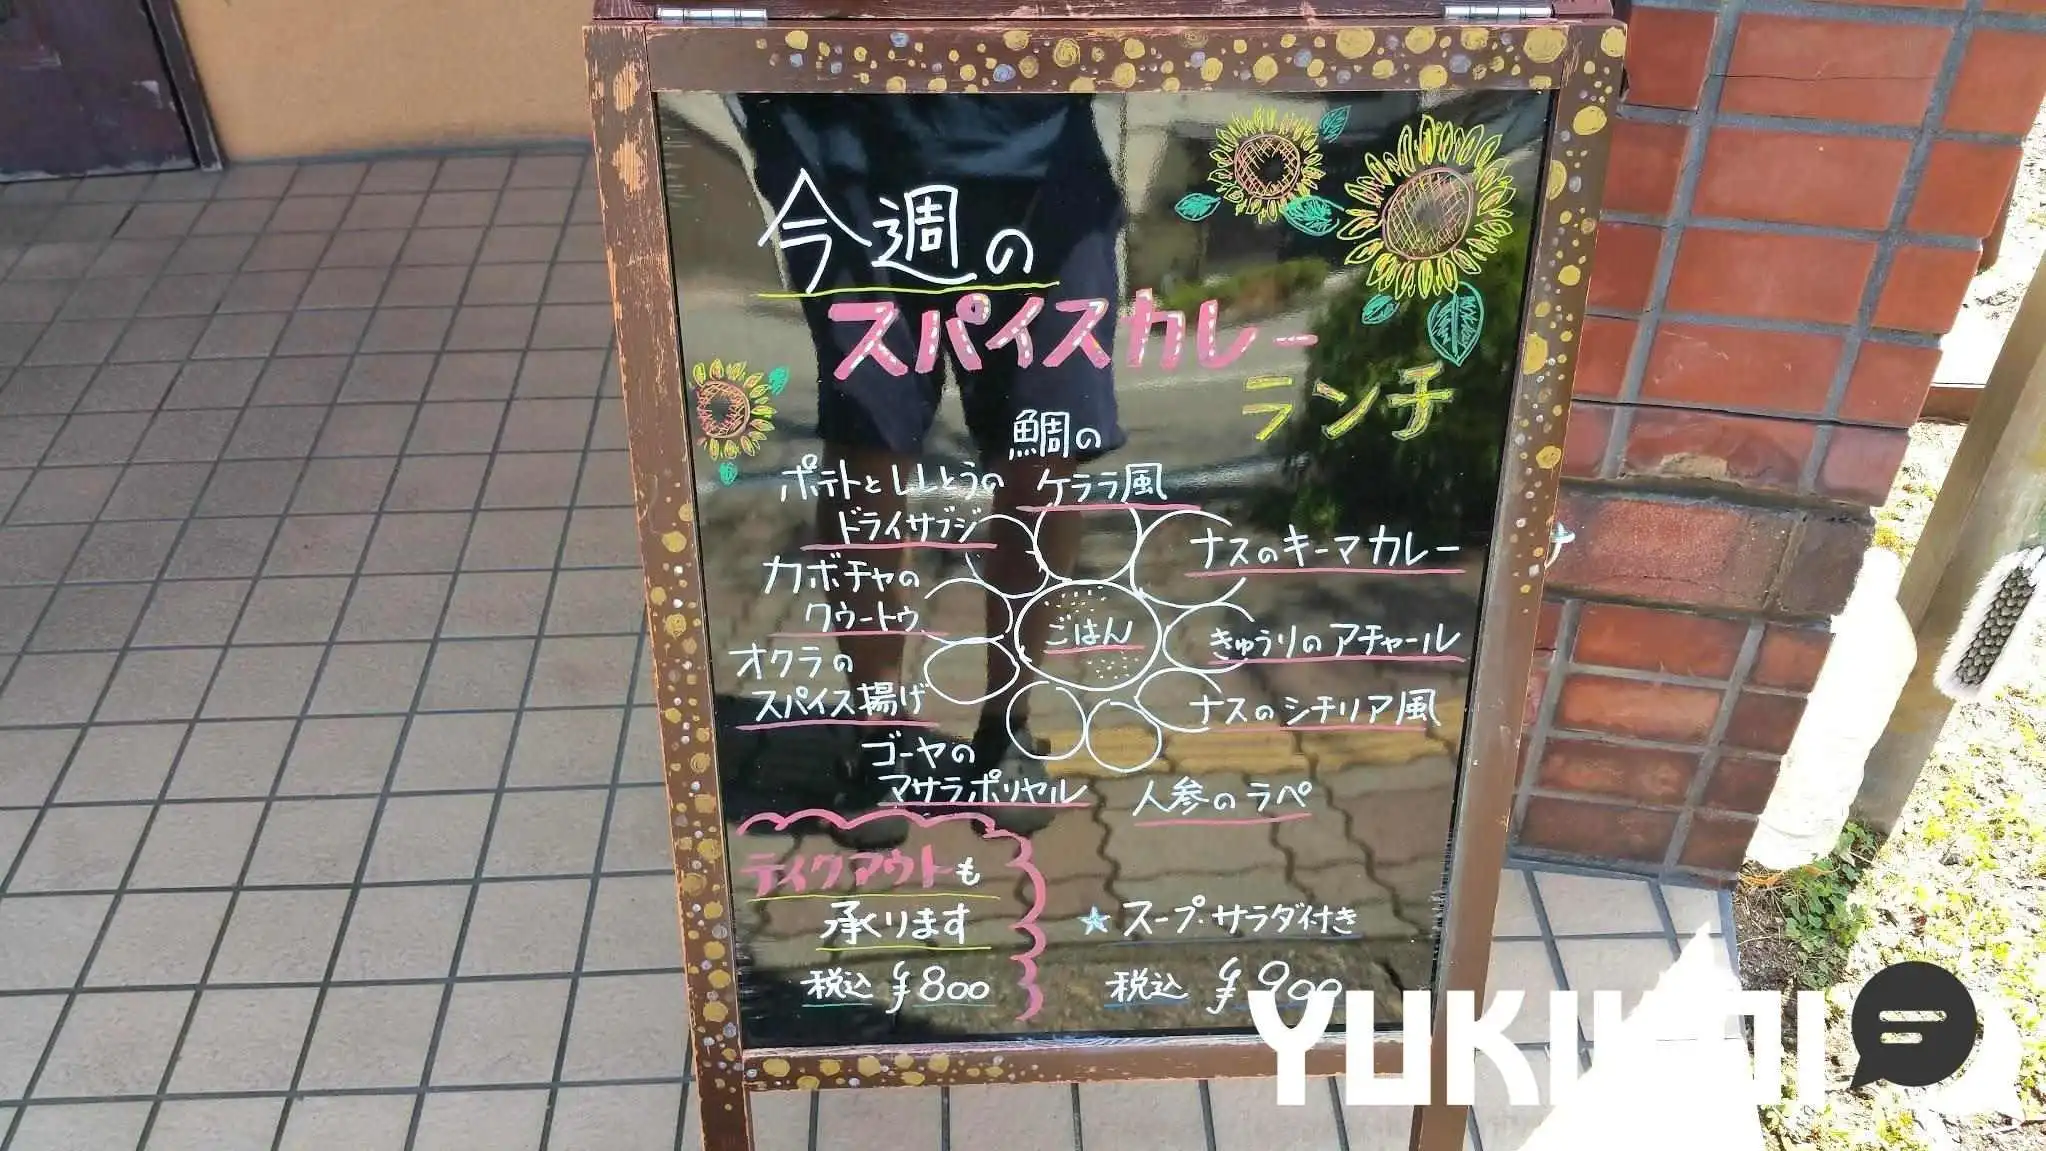 今週の
スパイスカレー
ランチ
鯛の
ケララ風
ポテトとししとうの
ドライサブジ
カボチャの
クウートゥ
オクラの
スパイス揚げ
ゴーヤの
マサラポリヤル
ごはん
ナスのキーマカレー
きゅうりのアチャール
ナスのシチリア風
人参のラペ
テイクアウトも
承ります
税込 ¥800
★スープ・サラダ付き
税込 ¥900